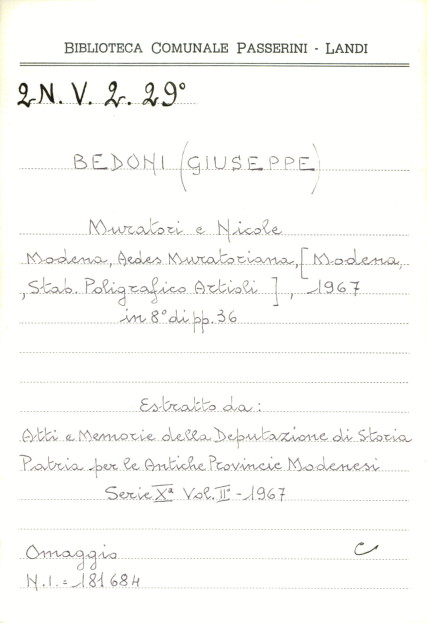 BIBLIOTECA COMUNALE PASSERINI - LANDI
2N. V. 2. 29°
BEDONI (GIUSEPPE)
Muratori e Nicole
Modena, Aedes Muratoriana, [Modena,
, Stab. Poligrafico Artioli ] , 1967
in 8° di pp. 36
Estratto da:
Atti e Memorie della Deputazione di Storia
Patria per le Antiche Provincie Modenesi
Serie Xª Vol. II° - 1967
Omaggio C
N.I. = 181684